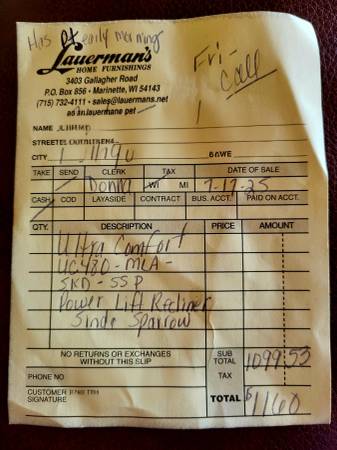 Has Pt early morning
Fri-
Call
Lauerman's
HOME FURNISHINGS
3403 Gallagher Road
P.O. Box 856 • Marinette, WI 54143
(715) 732-4111 • sales@lauermans.net
NAME
STREET
CITY
TAKE SEND CLERK TAX DATE OF SALE
Donna WI MI 7-17-25
CASH COD LAYASIDE CONTRACT BUS. ACCT. PAID ON ACCT.
QTY. DESCRIPTION PRICE AMOUNT
Ultra Comfort
UC480-MLA-
SKD-SSP
Power Lift Recliner
Sinde Sparrow
NO RETURNS OR EXCHANGES
WITHOUT THIS SLIP
SUB TOTAL 1099.53
TAX
PHONE NO
CUSTOMER
SIGNATURE
TOTAL $1160